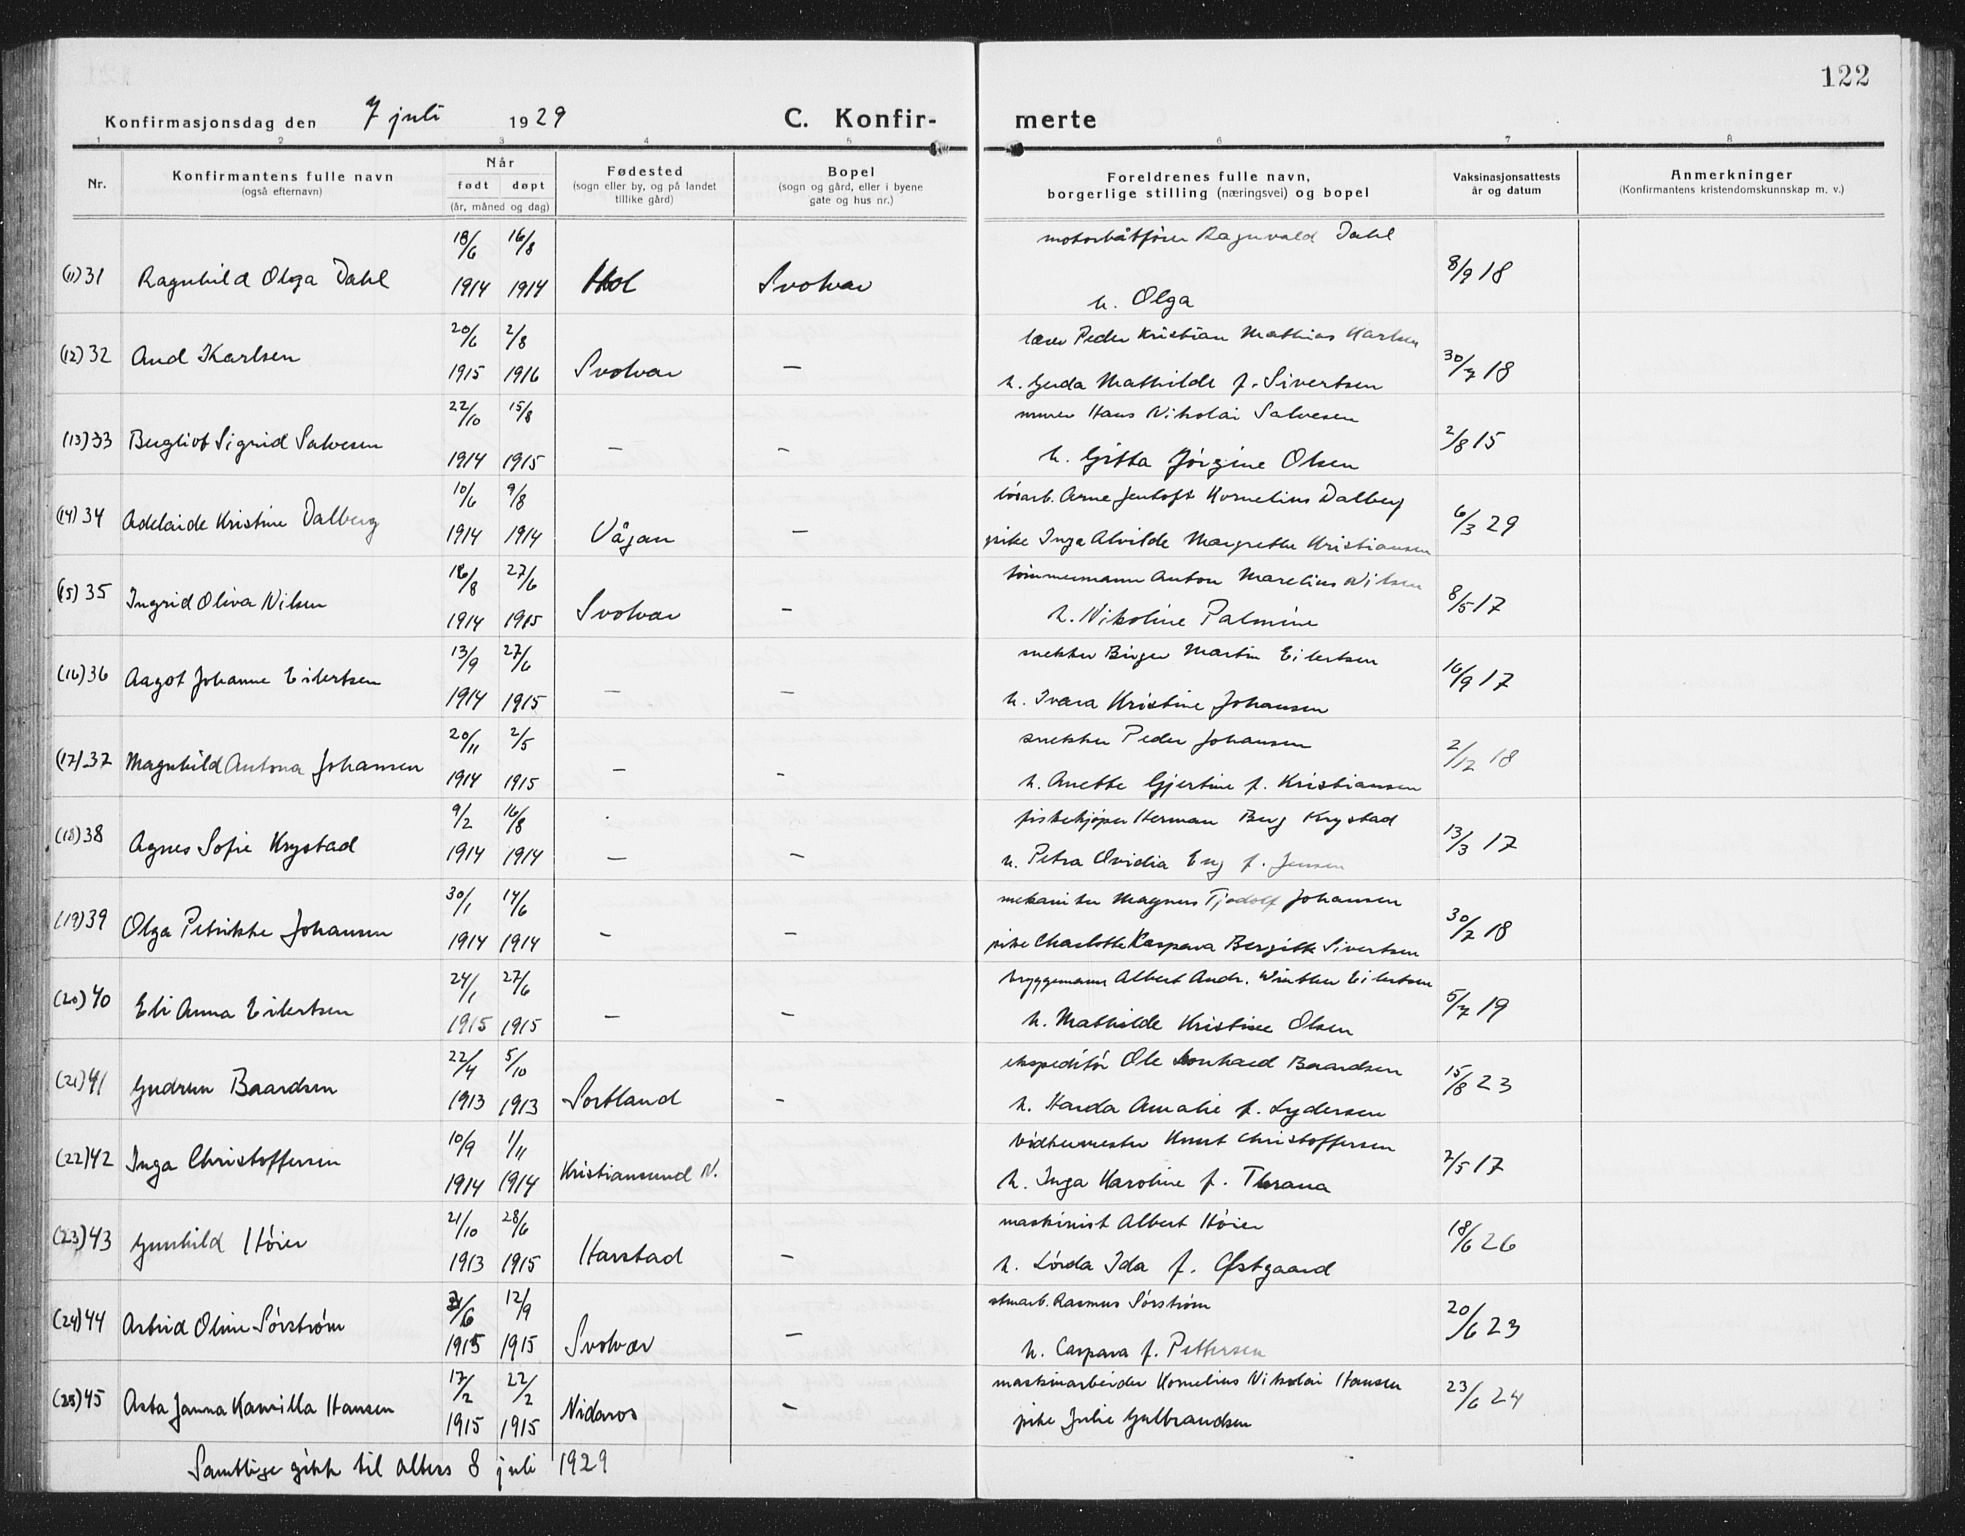 122
Konfirmasjonsdag den 7 juli 1929 C. Konfir- merte
1 2 3 4 5 6 7 8
Nr. Konfirmantens fulle navn (også efternavn) Når født døpt (år, måned og dag) Fødested (sogn eller by, og på landet tillike gård) Bopel (sogn og gård, eller i byene gate og hus nr.) Foreldrenes fulle navn, borgerlige stilling (næringsvei) og bopel Vaksinasjonsattests år og datum Anmerkninger (Konfirmantens kristendomskunnskap m. v.)
18/6 16/8 motorbåtfører Ragnvald Dahl
(11) 31 Ragnhild Olga Dahl 1914 1914 Hol Svolvær h. Olga 8/9 18
20/6 2/8 Peder Kristian Mathias Karlsen
(12) 32 Aud Karlsen 1915 1916 Svolvær — h. Gerda Mathilde f. Sivertsen 30/7 18
22/10 15/8 murer Hans Nikolai Salvesen
(13) 33 Bergliot Sigrid Salvesen 1914 1915 — — h. Gitta Jörgine Olsen 2/8 15
10/6 9/8 lösarb. Arne Jentoft Kornelius Dalberg
(14) 34 Adelaide Kristine Dalberg 1914 1914 Vågan — pike Inga Alvilde Margrethe Kristiansen 6/3 29
16/8 27/6 tömmermann Anton Marelius Nilsen
(15) 35 Ingrid Oliva Nilsen 1914 1915 Svolvær — h. Nikoline Palmine 8/5 17
13/9 27/6 snekker Birger Martin Eilertsen
(16) 36 Aagot Johanne Eilertsen 1914 1915 — — h. Ivara Kristine Johansen 16/9 17
20/11 2/5 snekker Peder Johansen
(17) 37 Magnhild Antona Johansen 1914 1915 — — h. Anette Gjertine f. Kristiansen 2/12 18
9/2 16/8 fiskekjøper Herman Berg Krystad
(18) 38 Agnes Sofie Krystad 1914 1914 — — h. Petra Ovidia Eng f. Jensen 13/3 17
30/1 14/6 mekaniker Magnus Tjodolf Johansen
(19) 39 Olga Petrikke Johansen 1914 1914 — — pike Charlotte Kaspara Bergitte Sivertsen 30/7 18
24/1 27/6 bryggemann Albert Andr. Winther Eilertsen
(20) 40 Eli Anna Eilertsen 1915 1915 — — h. Mathilde Kristine Olsen 5/7 19
22/4 5/10 ekspeditör Ole Leonhard Baardsen
(21) 41 Gudrun Baardsen 1913 1913 Sortland — h. Harda Amalie f. Lydersen 15/8 23
10/9 1/11 Knut Christoffersen
(22) 42 Inga Christoffersen 1914 1914 Kristiansund N. h. Inga Karoline f. Thrana 2/5 17
21/10 28/6 maskinist Albert Höier
(23) 43 Gunhild Höier 1913 1915 Harstad — h. Lörda Ida f. Østgaard 18/6 26
/6 12/9 Rasmus Sörström
(24) 44 Astrid Oline Sörström 1915 1915 Svolvær — h. Caspara f. Pettersen 20/6 23
17/2 22/2 maskinarbeider Kornelius Nikolai Hansen
(25) 45 Asta Janna Kamilla Hansen 1915 1915 Nidaros — pike Julie Gulbrandsen 23/6 24
Samtlige gikk til alters 8 juli 1929